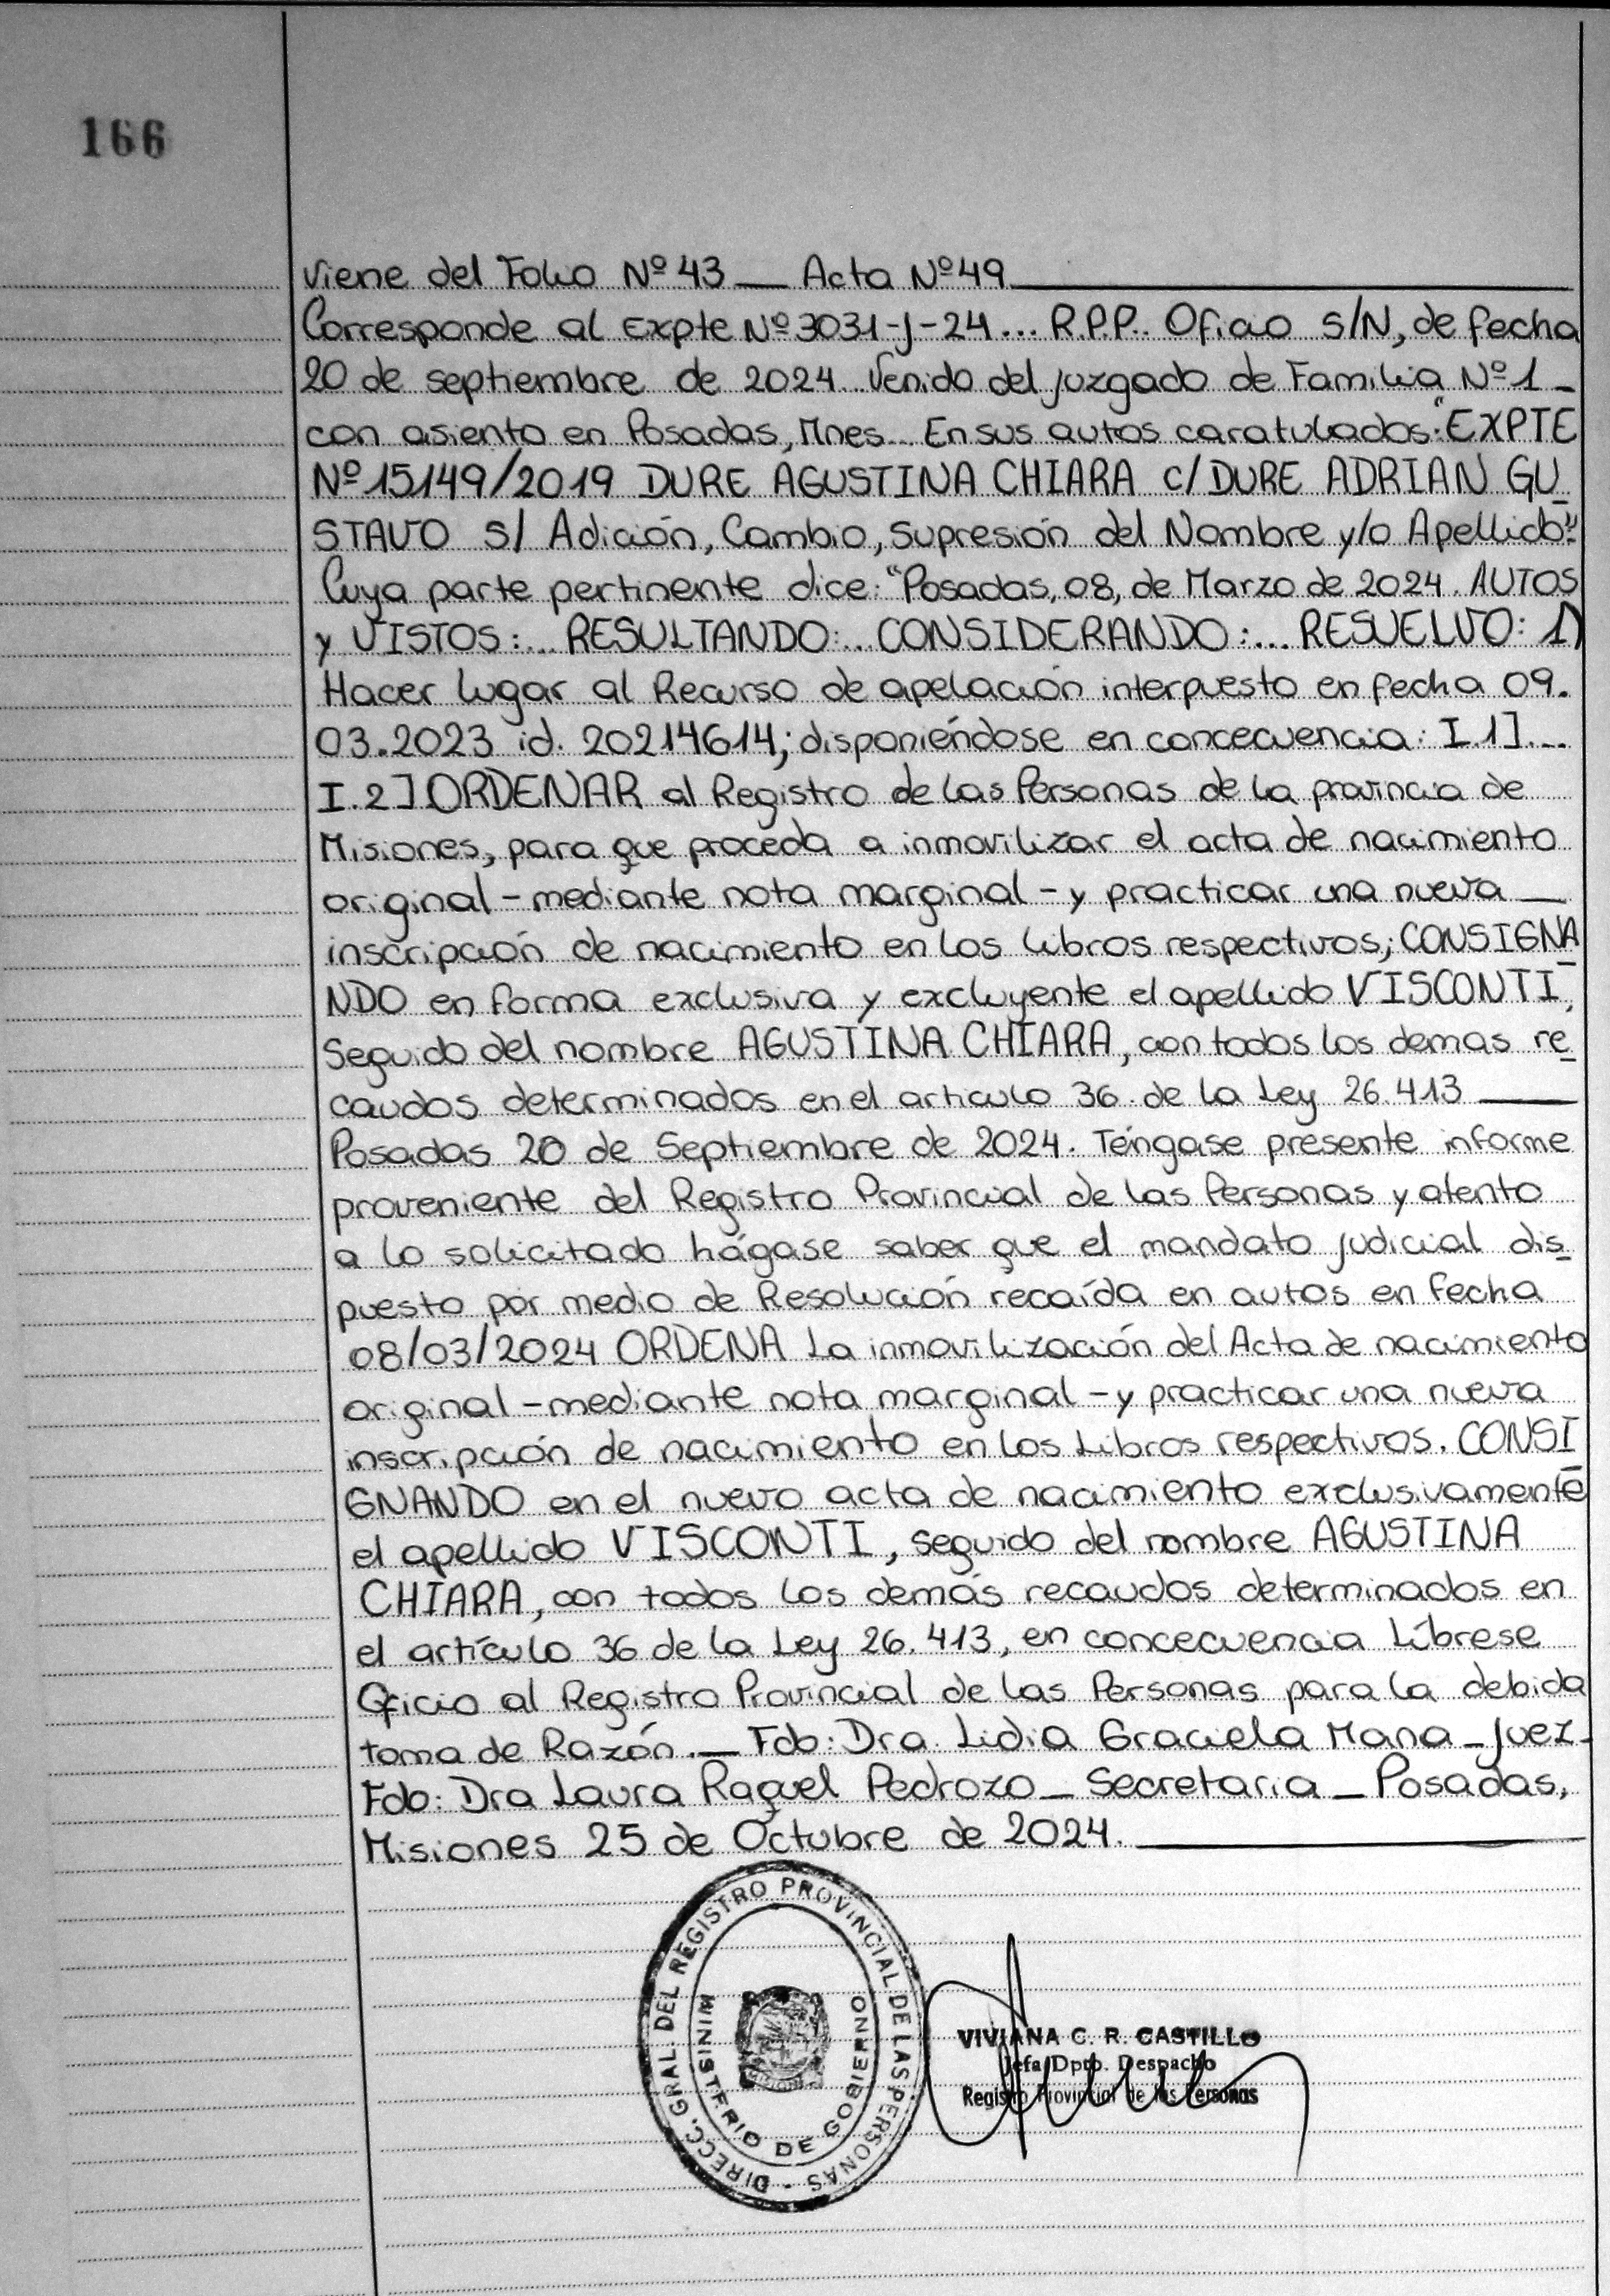 166
Viene del Folio Nº 43 __ Acta Nº 49
Corresponde al Expte Nº 3031-J-24... R.P.P.. Oficio S/N, de fecha
20 de septiembre de 2024. Venido del Juzgado de Familia Nº 1 _
con asiento en Posadas, Mnes... En sus autos caratulados: "EXPTE
Nº 15149/2019 DURE AGUSTINA CHIARA C/ DURE ADRIAN GU_
STAVO S/ Adición, Cambio, Supresión del Nombre y/o Apellido"
Cuya parte pertinente dice: "Posadas, 08, de Marzo de 2024. AUTOS
y VISTOS:... RESULTANDO:... CONSIDERANDO:... RESUELVO: 1)
Hacer lugar al Recurso de apelación interpuesto en fecha 09.
03.2023 id. 20214614; disponiéndose en concecuencia: I.1]...
I.2] ORDENAR al Registro de las Personas de la provincia de
Misiones, para que proceda a inmovilizar el acta de nacimiento
original - mediante nota marginal - y practicar una nueva __
inscripción de nacimiento en los libros respectivos; CONSIGNA_
NDO en forma exclusiva y excluyente el apellido VISCONTI,
Seguido del nombre AGUSTINA CHIARA, con todos los demas re_
caudos determinados en el articulo 36. de la Ley 26.413 ____
Posadas 20 de Septiembre de 2024. Téngase presente informe
proveniente del Registro Provincial de las Personas y atento
a lo solicitado hágase saber que el mandato judicial dis_
puesto por medio de Resolución recaída en autos en fecha
08/03/2024 ORDENA La inmovilización del Acta de nacimiento
original - mediante nota marginal - y practicar una nueva
inscripción de nacimiento en los Libros respectivos. CONSI_
GNANDO en el nuevo acta de nacimiento exclusivamente
el apellido VISCONTI, seguido del nombre AGUSTINA
CHIARA, con todos los demás recaudos determinados en
el artículo 36 de la Ley 26.413, en concecuencia Líbrese
Oficio al Registro Provincial de las Personas para la debida
toma de Razón. __ Fdo: Dra. Lidia Graciela Mana _ Juez _
Fdo: Dra Laura Raquel Pedrozo _ Secretaria _ Posadas,
Misiones 25 de Octubre de 2024. ____
DIRECC. GRAL. DEL REGISTRO PROVINCIAL DE LAS PERSONAS -
MINISTERIO DE GOBIERNO
MISIONES
VIVIANA C. R. CASTILLO
Jefa Dpto. Despacho
Registro Provincial de las Personas